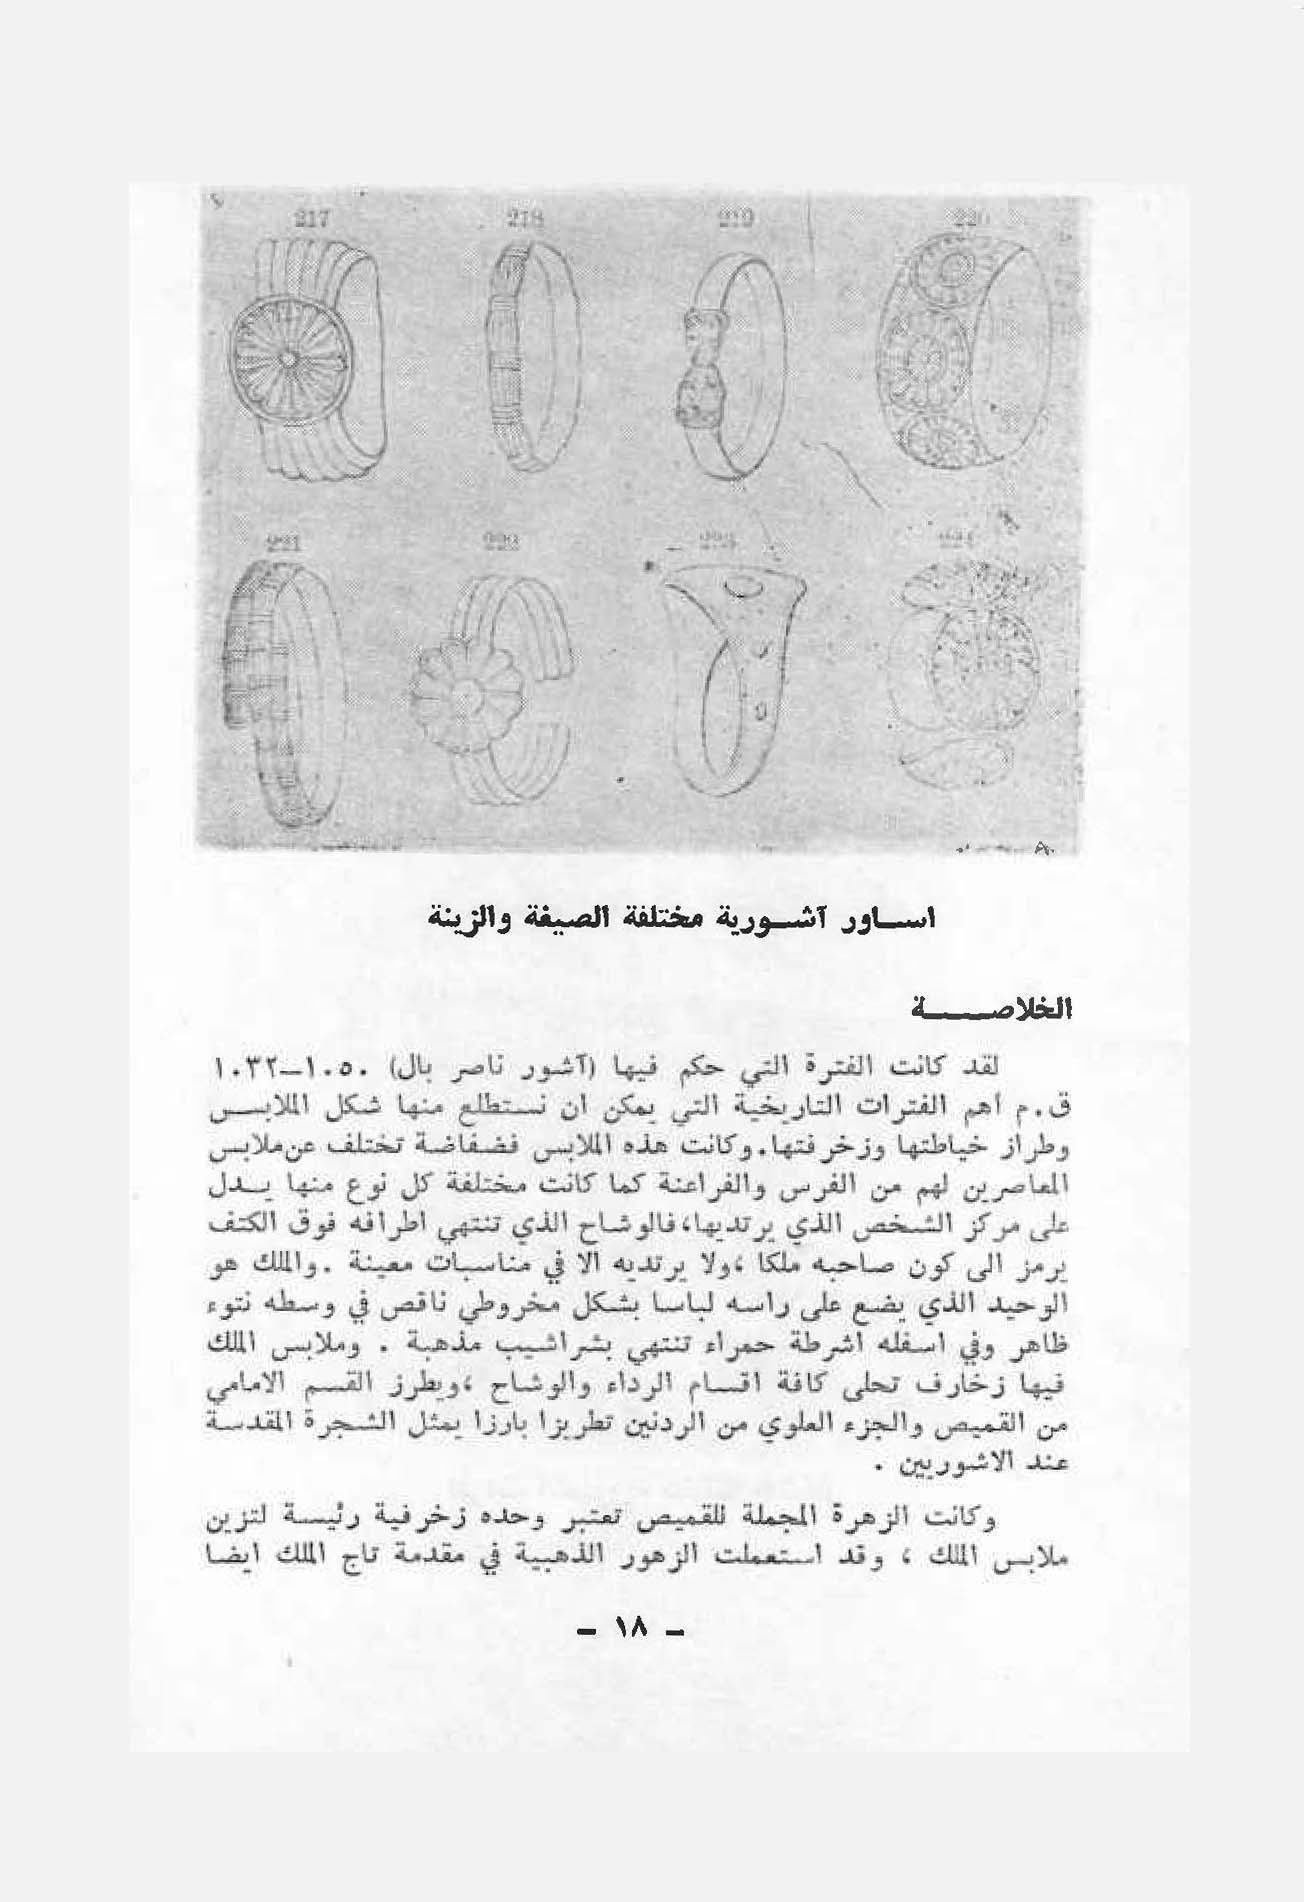 217 218 219 220
221 222 223 224
اساور آشورية مختلفة الصيغة والزينة
الخلاصة
لقد كانت الفترة التي حكم فيها (آشور ناصر بال) ١٠٥٠–١٠٣٢
ق.م اهم الفترات التاريخية التي يمكن ان نستطلع منها شكل الملابس
وطراز خياطتها وزخرفتها.وكانت هذه الملابس فضفاضة تختلف عن ملابس
المعاصرين لهم من الفرس والفراعنة كما كانت مختلفة كل نوع منها يدل
على مركز الشخص الذي يرتديها،فالوشاح الذي تنتهي اطرافه فوق الكتف
يرمز الى كون صاحبه ملكا ،ولا يرتديه الا في مناسبات معينة .والملك هو
الوحيد الذي يضع على راسه لباسا بشكل مخروطي ناقص في وسطه نتوء
ظاهر وفي اسفله اشرطة حمراء تنتهي بشراشيب مذهبة . وملابس الملك
فيها زخارف تحلى كافة اقسام الرداء والوشاح ،ويطرز القسم الامامي
من القميص والجزء العلوي من الردنين تطريزا بارزا يمثل الشجرة المقدسة
عند الاشوريين .
وكانت الزهرة المجملة للقميص تعتبر وحده زخرفية رئيسة لتزين
ملابس الملك ، وقد استعملت الزهور الذهبية في مقدمة تاج الملك ايضا
– ١٨ –